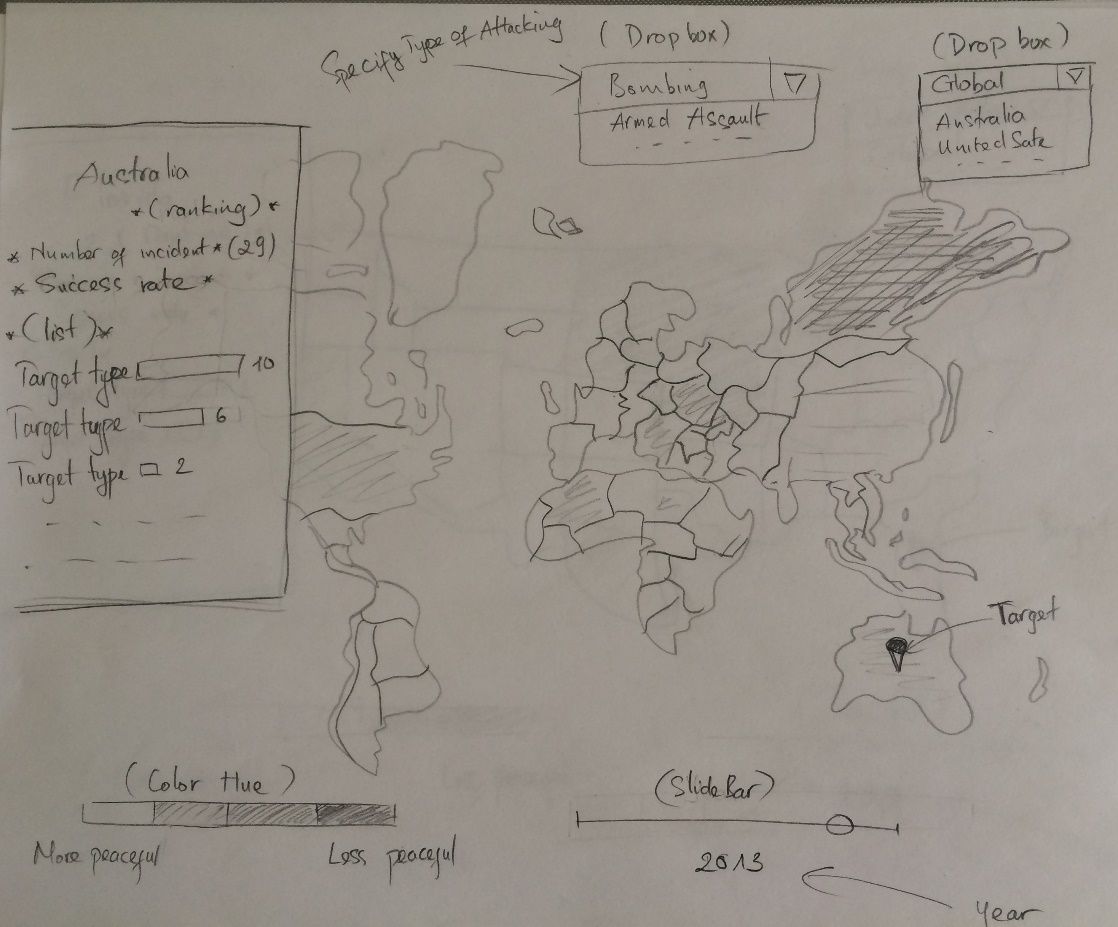 Specify Type of Attacking
(Drop box)
Bombing
Armed Assault
(Drop box)
Global
Australia
United Sate
Australia
*(ranking)*
* Number of incident * (29)
* Success rate *
*(list)*
Target type 10
Target type 6
Target type 2
Target
(Color Hue)
More peaceful
Less peaceful
(Slide Bar)
2013
Year